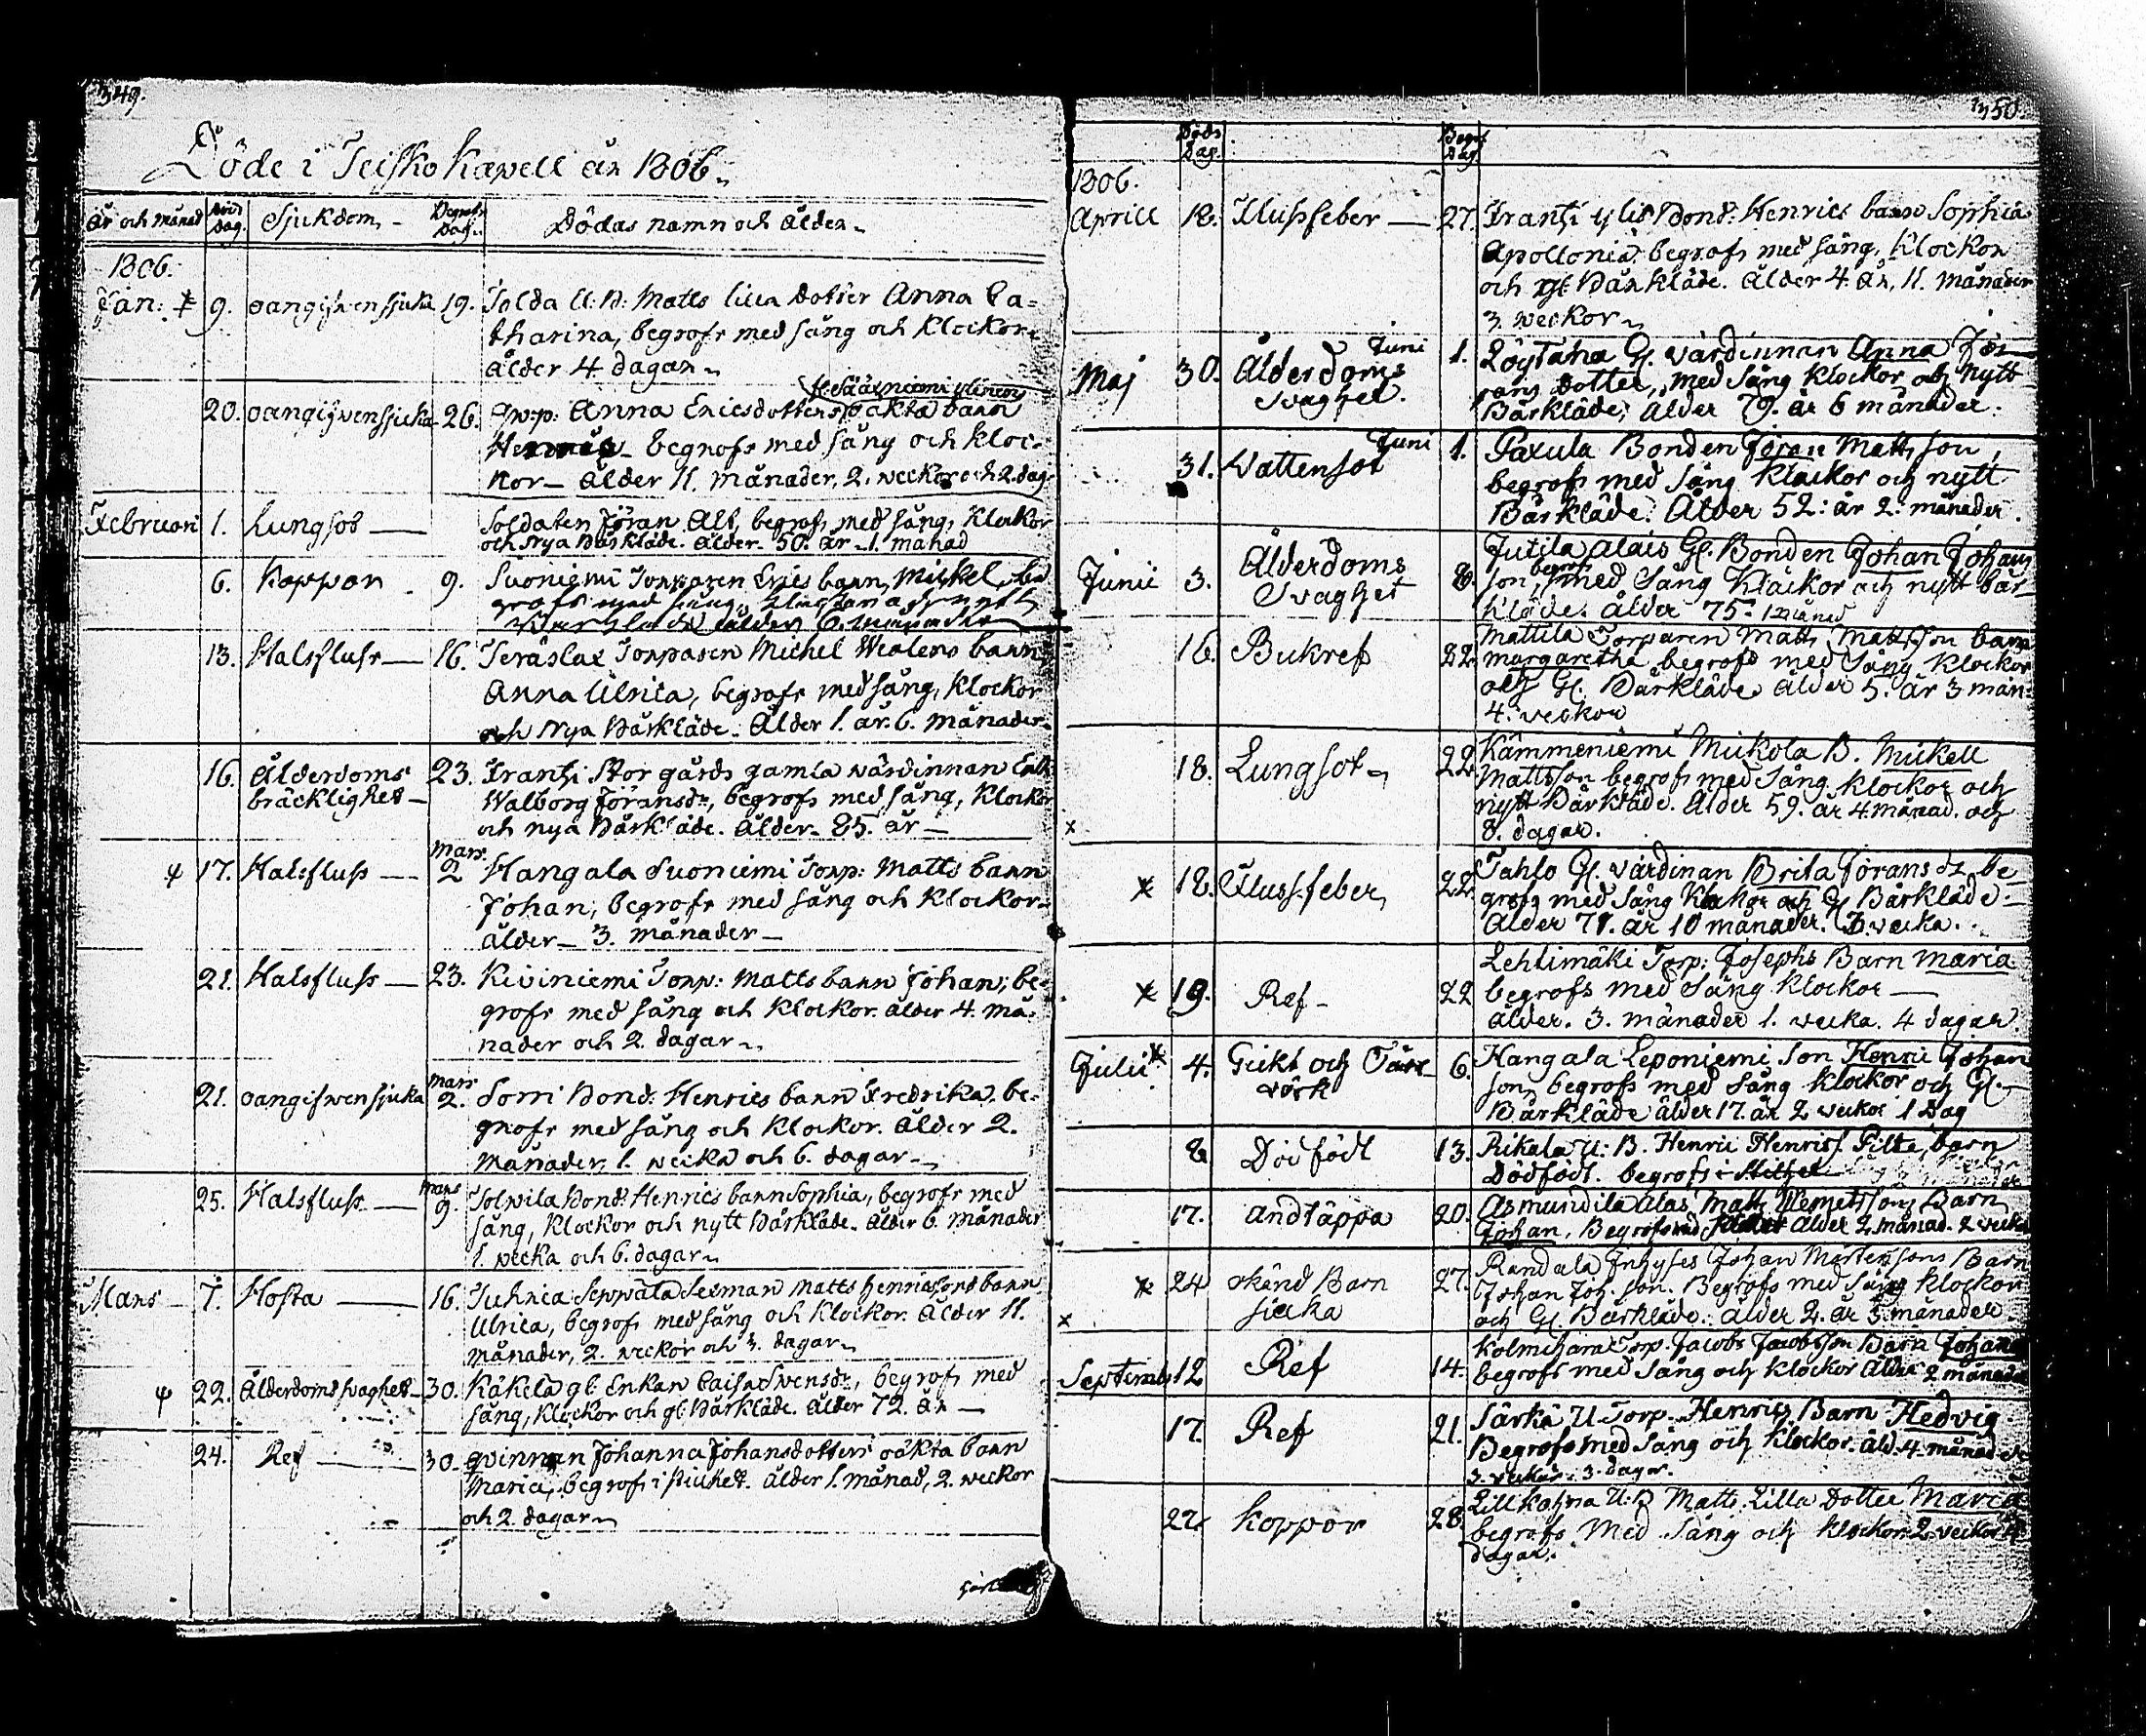 349.
Döde i Teisko Kapell år 1806.
År och månad Död Dag. Sjukdom Begrafn Dag. Dödas namn och Ålder
1806.
Jan: 9. oangifven sjuka 19. Tolda U: B: Matts lilla dotter Anna Ca-
tharina, begrofs med sång och klockor.
ålder 4 dagar
20. oangifven sjuka 26. qv:p: Anna Ericsdotters oäkta barn
begrofs med sång och kloc-
kor – ålder 11. månader, 2. veckor och 2. dag.
Februari 1. Lungsot Soldaten Jöran Alt, begrofs med sång, klockor
och Nya Bårkläde. Ålder 50. år 1. månad
6. Koppor 9. Suoniemi Torparen Erics barn, Mickel, be-
grofs med sång,
ålder 6. månader
13. Halsfluss 16. Teräslax Torparen Michel barn
Anna Ulrica, begrofs med sång, klockor
och Nya Bårkläde. Ålder 1. år. 6. månader
16. Ålderdoms 23. Frantzi Storgårds gamla värdinnan Enk:
bräcklighet Walborg Jöransdr, begrofs med sång, klockor
och nya Bårkläde. Ålder 85. år
17. Halsfluss Mars. 2 Hangala Suoniemi Torp: Matts barn
Johan, begrofs med sång och klockor
ålder 3. månader
21. Halsfluss 23. Kiviniemi Torp: Matts barn Johan, be-
grofs med sång och klockor. ålder 4. må-
nader och 2. dagar
21. oangifven sjuka Mars 2. Sorri Bond: Henrics barn Fredrika. be-
grofs med sång och klockor. Ålder 2.
Månader, 1. vecka och 6. dagar
25. Halsfluss Mars 9. Tolvila Bond: Henrics barn Sophia, begrofs med
sång, klockor och nytt Bårkläde. Ålder 6. Månader
1. vecka och 6. dagar
Mars 7. Hosta 16. Juhnea Seppälä Matts Henricsons barn
Ulrica, begrofs med sång och klockor. Ålder 11.
månader, 2. veckor och 3. dagar
22. Ålderdoms svaghet 30. Käkelä gl. Enkan Caisa Svensdr, begrofs med
sång, klockor och gl. Bårkläde. Ålder 72. år
24. Ref 30. qvinnan Johanna Johansdotters oäkta barn
Maria, begrofs i sticket. ålder 1. månad, 2. veckor
och 2. dagar
350.
Döds Dag. Begrf Dag.
1806.
Aprill 18. Flussfeber 27. Frantzi ylis Bond: Henrics barn Sophia
Apollonia, begrofs med sång, klockor
och gl Bårkläde. Ålder 4. år, 11. månader
3. veckor
Maj 30. Ålderdoms Juni 1. Löytana Gl. värdinnan Anna Jö-
Svaghet. rans Dotter, med Sång klockor och nytt
Bårkläde, Ålder 79. år 6 månader.
31. Wattensot Juni 1. Paxula Bonden Jöran Mattsson,
begrofs med Sång klockor och nytt
Bårkläde. Ålder 52: år 2: månader.
Junii 3. Ålderdoms 8. Jutila Alais Gl. Bonden Johan Johans
Svaghet son begrofs med Sång klockor och nytt Bår-
kläde. Ålder 75. 1 månad
16. Bukref 22. Mattila Torparen Matts Mattsson barn
Margaretha begrofs med Sång klockor
och Gl. Bårkläde Ålder 5. år 3 mån:
4. veckor
18. Lungsot 22. Kämmeniemi Mickola B. Mickell
Mattsson begrofs med Sång klockor och
nytt Bårkläde. Ålder 59. år 4. månad. och
8. dagar.
18. Flussfeber 22. Tahlo Gl. värdinan Brita Jöransdr be-
grofs med Sång klockor och Gl Bårkläde.
Ålder 71. år 10 månader. vecka.
19. Ref 22 Lehtimäki Torp: Josephs Barn Maria
begrofs med Sång klockor
Ålder. 3. månader 1. vecka. 4 dagar.
Julii 4. Gickt och Tär 6. Hangala Leponiemi Son Henric Johan
värk son, begrofs med Sång klockor och Gl.
Bårkläde ålder 17. år 2 veckor 1 Dag
8 Dödfödt 13. Rikala U: B. Henric Henrics. Pilte, barn
Dödfödt. begrofs
17. Andtäppa 20. Asmundila Alas Matts Barn
Johan. Begrofs med Ålder 2 månad. 2 veckor
24 okänd Barn 27. Randala Inhyses Johan Mårtensons Barn
sjuka Johan Joh. son. Begrofs med Sång klockor
och Gl. Bårkläde. Ålder 2. år 5 månader
Septemb 12 Ref 14. Torp. Jacobs Jacobsson Barn Johan
begrofs med Sång och klockor Ålder 2 månader
17. Ref 21. Särkä U. Torp. Henrics Barn Hedvig
Begrofs med Sång och klockor. äld. 4 månader
3. veckor 3. dagar.
22. Koppor 28. U: B Matts Lilla Dotter Maria
begrofs Med Sång och klockor. 2. veckor
dagar.